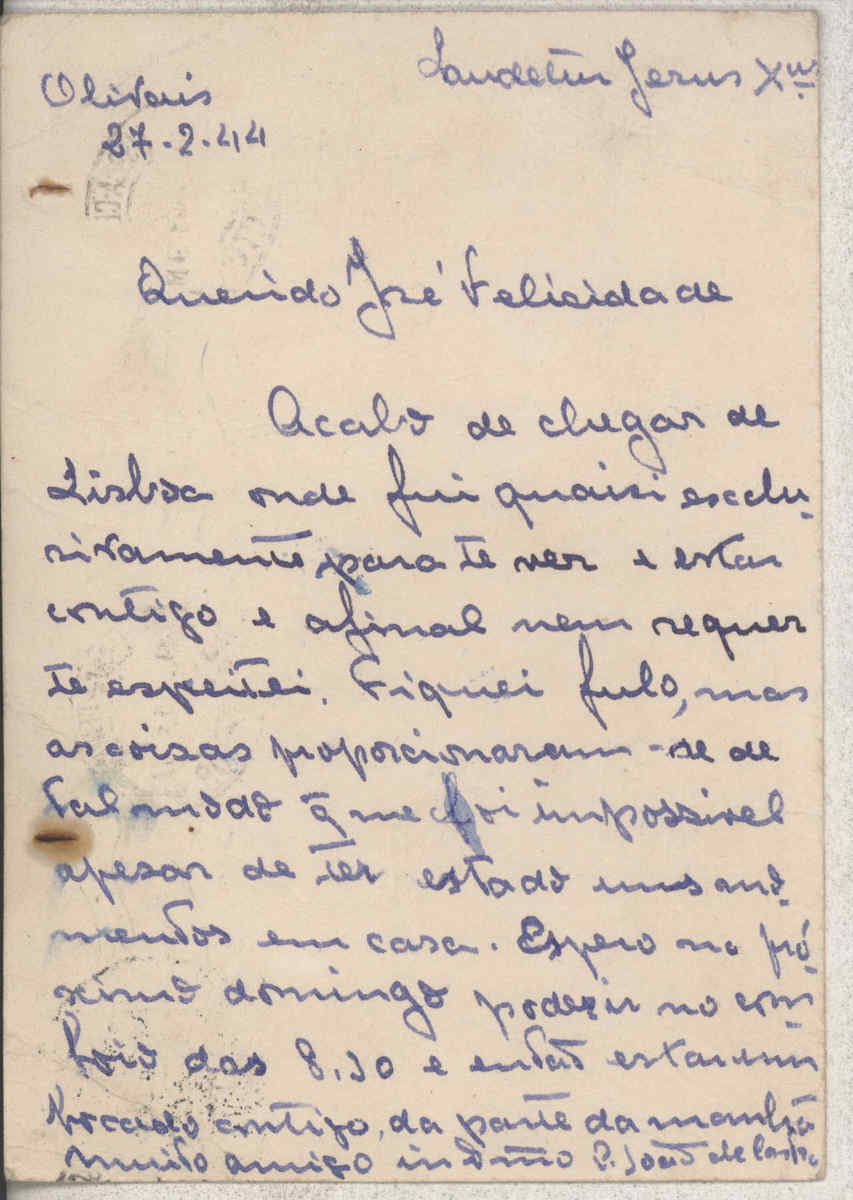 Olivais
Laudetur Jesus Xus
27-2-44
Querido José Felicidade
Acabo de chegar de
Lisboa onde fui quaisi esclu-
sivamente para te ver e estar
contigo e afinal nem sequer
te espreitei. Fiquei fulo, mas
as coisas proporcionaram-se de
tal modo que foi impossivel
apesar de ter estado uns mo-
mentos em casa. Espero no pró-
ximo domingo poder ir no com-
boio das 8,30 e então estar um
bocado contigo, da parte da manhã
Muito amigo in Dmo P. João de Castro